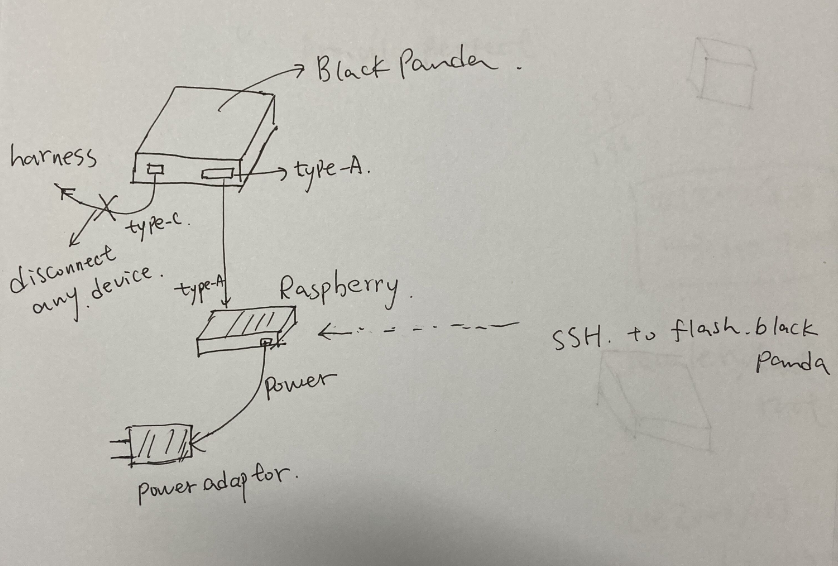 Black Panda.
harness
type-A.
type-C.
disconnect
any device.
type-A
Raspberry.
SSH. to flash.black
Panda
Power
Power adaptor.